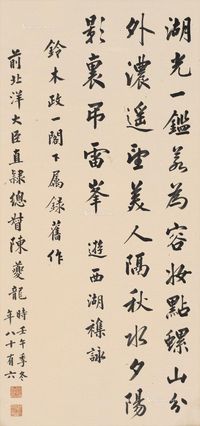 湖光一鑑若為容妝點螺山分
外濃遙望美人隔秋水夕陽
影裏弔雷峯 遊西湖雜詠
鈴木政一閣下屬錄舊作
前北洋大臣直隸總督陳夔龍 時壬午季冬
年八十有六